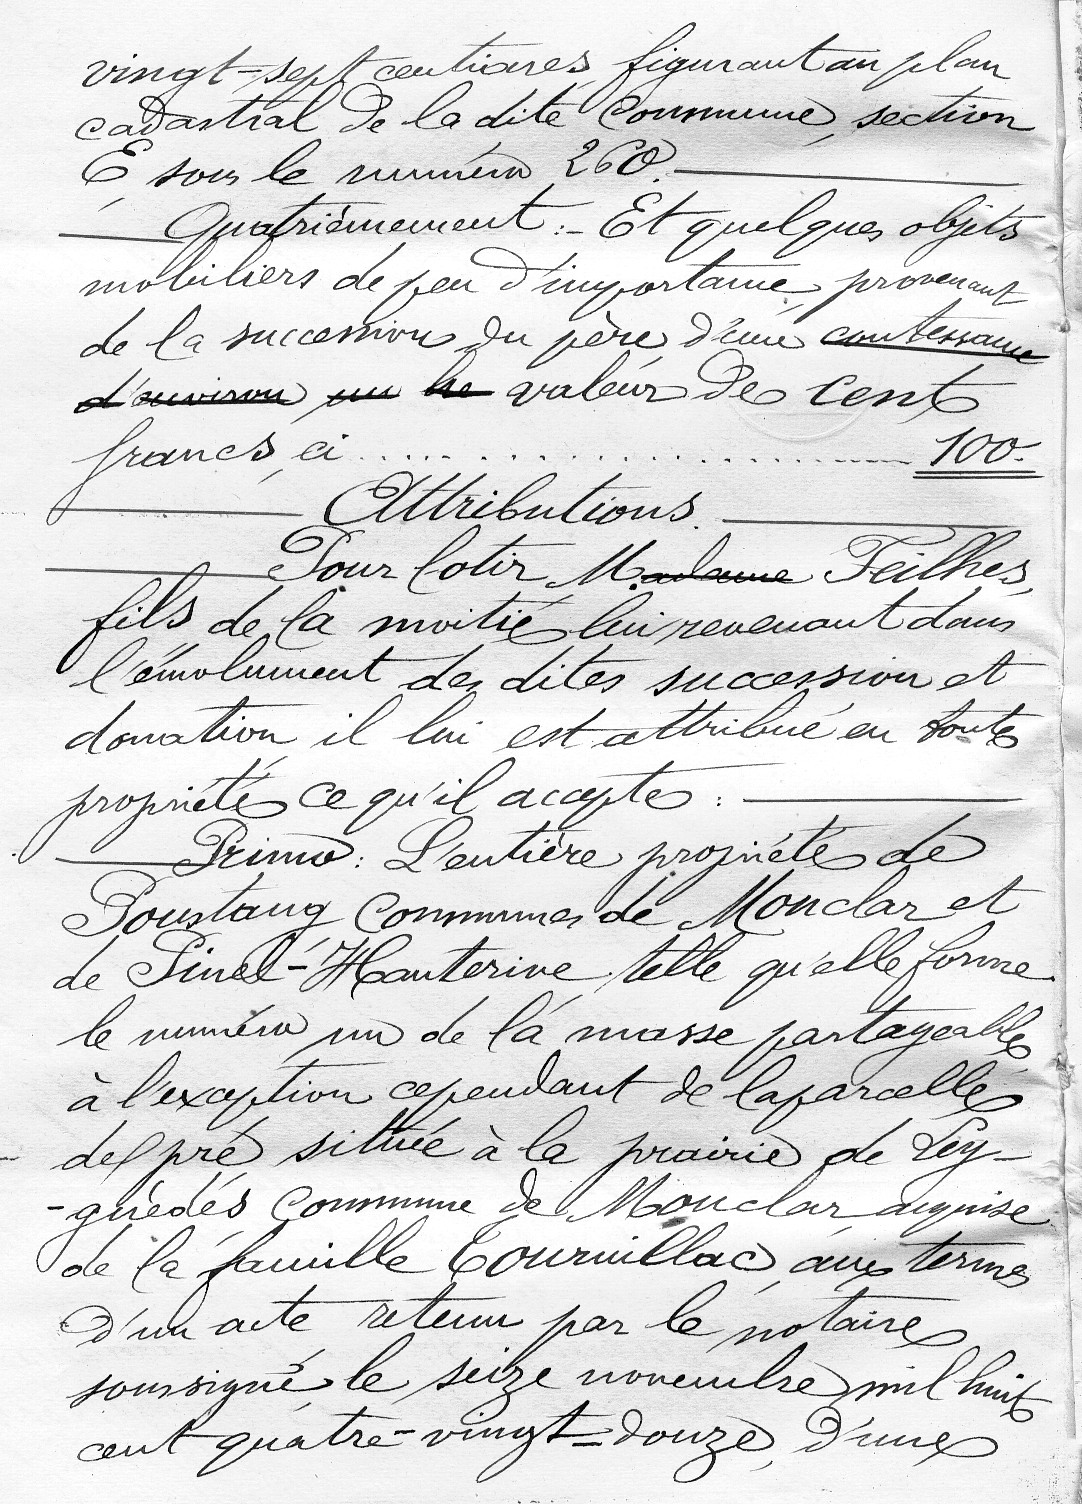 vingt-sept centiares, figurant au plan
cadastral de la dite commune, section
E sous le numéro 260.
Quatrièmement :- Et quelques objets
mobiliers de peu d'importance, provenant
de la succession du père d'une contenance
d'environ un he valeur de cent
francs, ci .......... 100.
Attributions.
Pour lotir Madame Feilhes,
fils de la moitié lui revenant dans
l'émolument des dites succession et
donation, il lui est attribué en toute
propriété ce qu'il accepte :
Primo : L'entière propriété de
Poustang communes de Monclar et
de Pinel-Hauterive, telle qu'elle forme
le numéro un de la masse partageable
à l'exception cependant de la parcelle
de pré située à la prairie de Ley-
-guèdés commune de Monclar, acquise
de la famille Tournillac, aux termes
d'un acte retenu par le notaire
soussigné, le seize novembre mil huit
cent quatre-vingt-douze, d'une